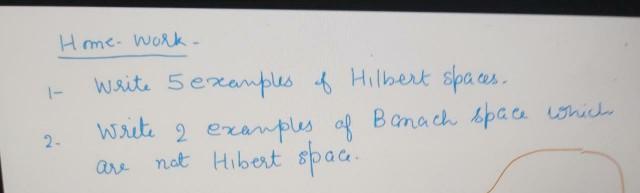 Home-Work-
1- Write 5 examples of Hilbert spaces.
2- Write 2 examples of Banach space which
are not Hibert space.